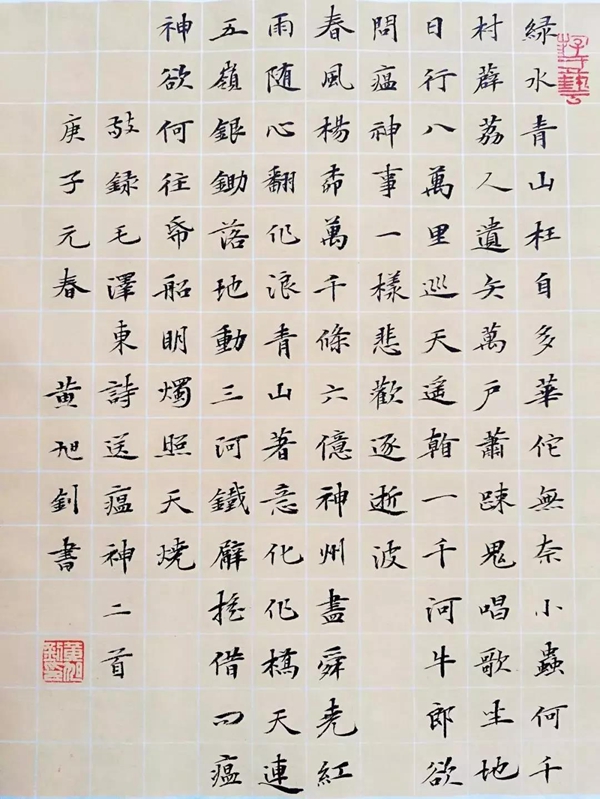 綠水青山枉自多華佗無奈小蟲何千
村薜荔人遺矢萬戶蕭踈鬼唱歌坐地
日行八萬里巡天遥看一千河牛郎欲
問瘟神事一樣悲歡逐逝波
春風楊柳萬千條六億神州盡舜堯紅
雨随心翻作浪青山著意化作橋天連
五嶺銀鋤落地動三河鐵臂搖借问瘟
神欲何往帋船明燭照天燒
敬録毛澤東詩送瘟神二首
庚子元春 黃旭釗書